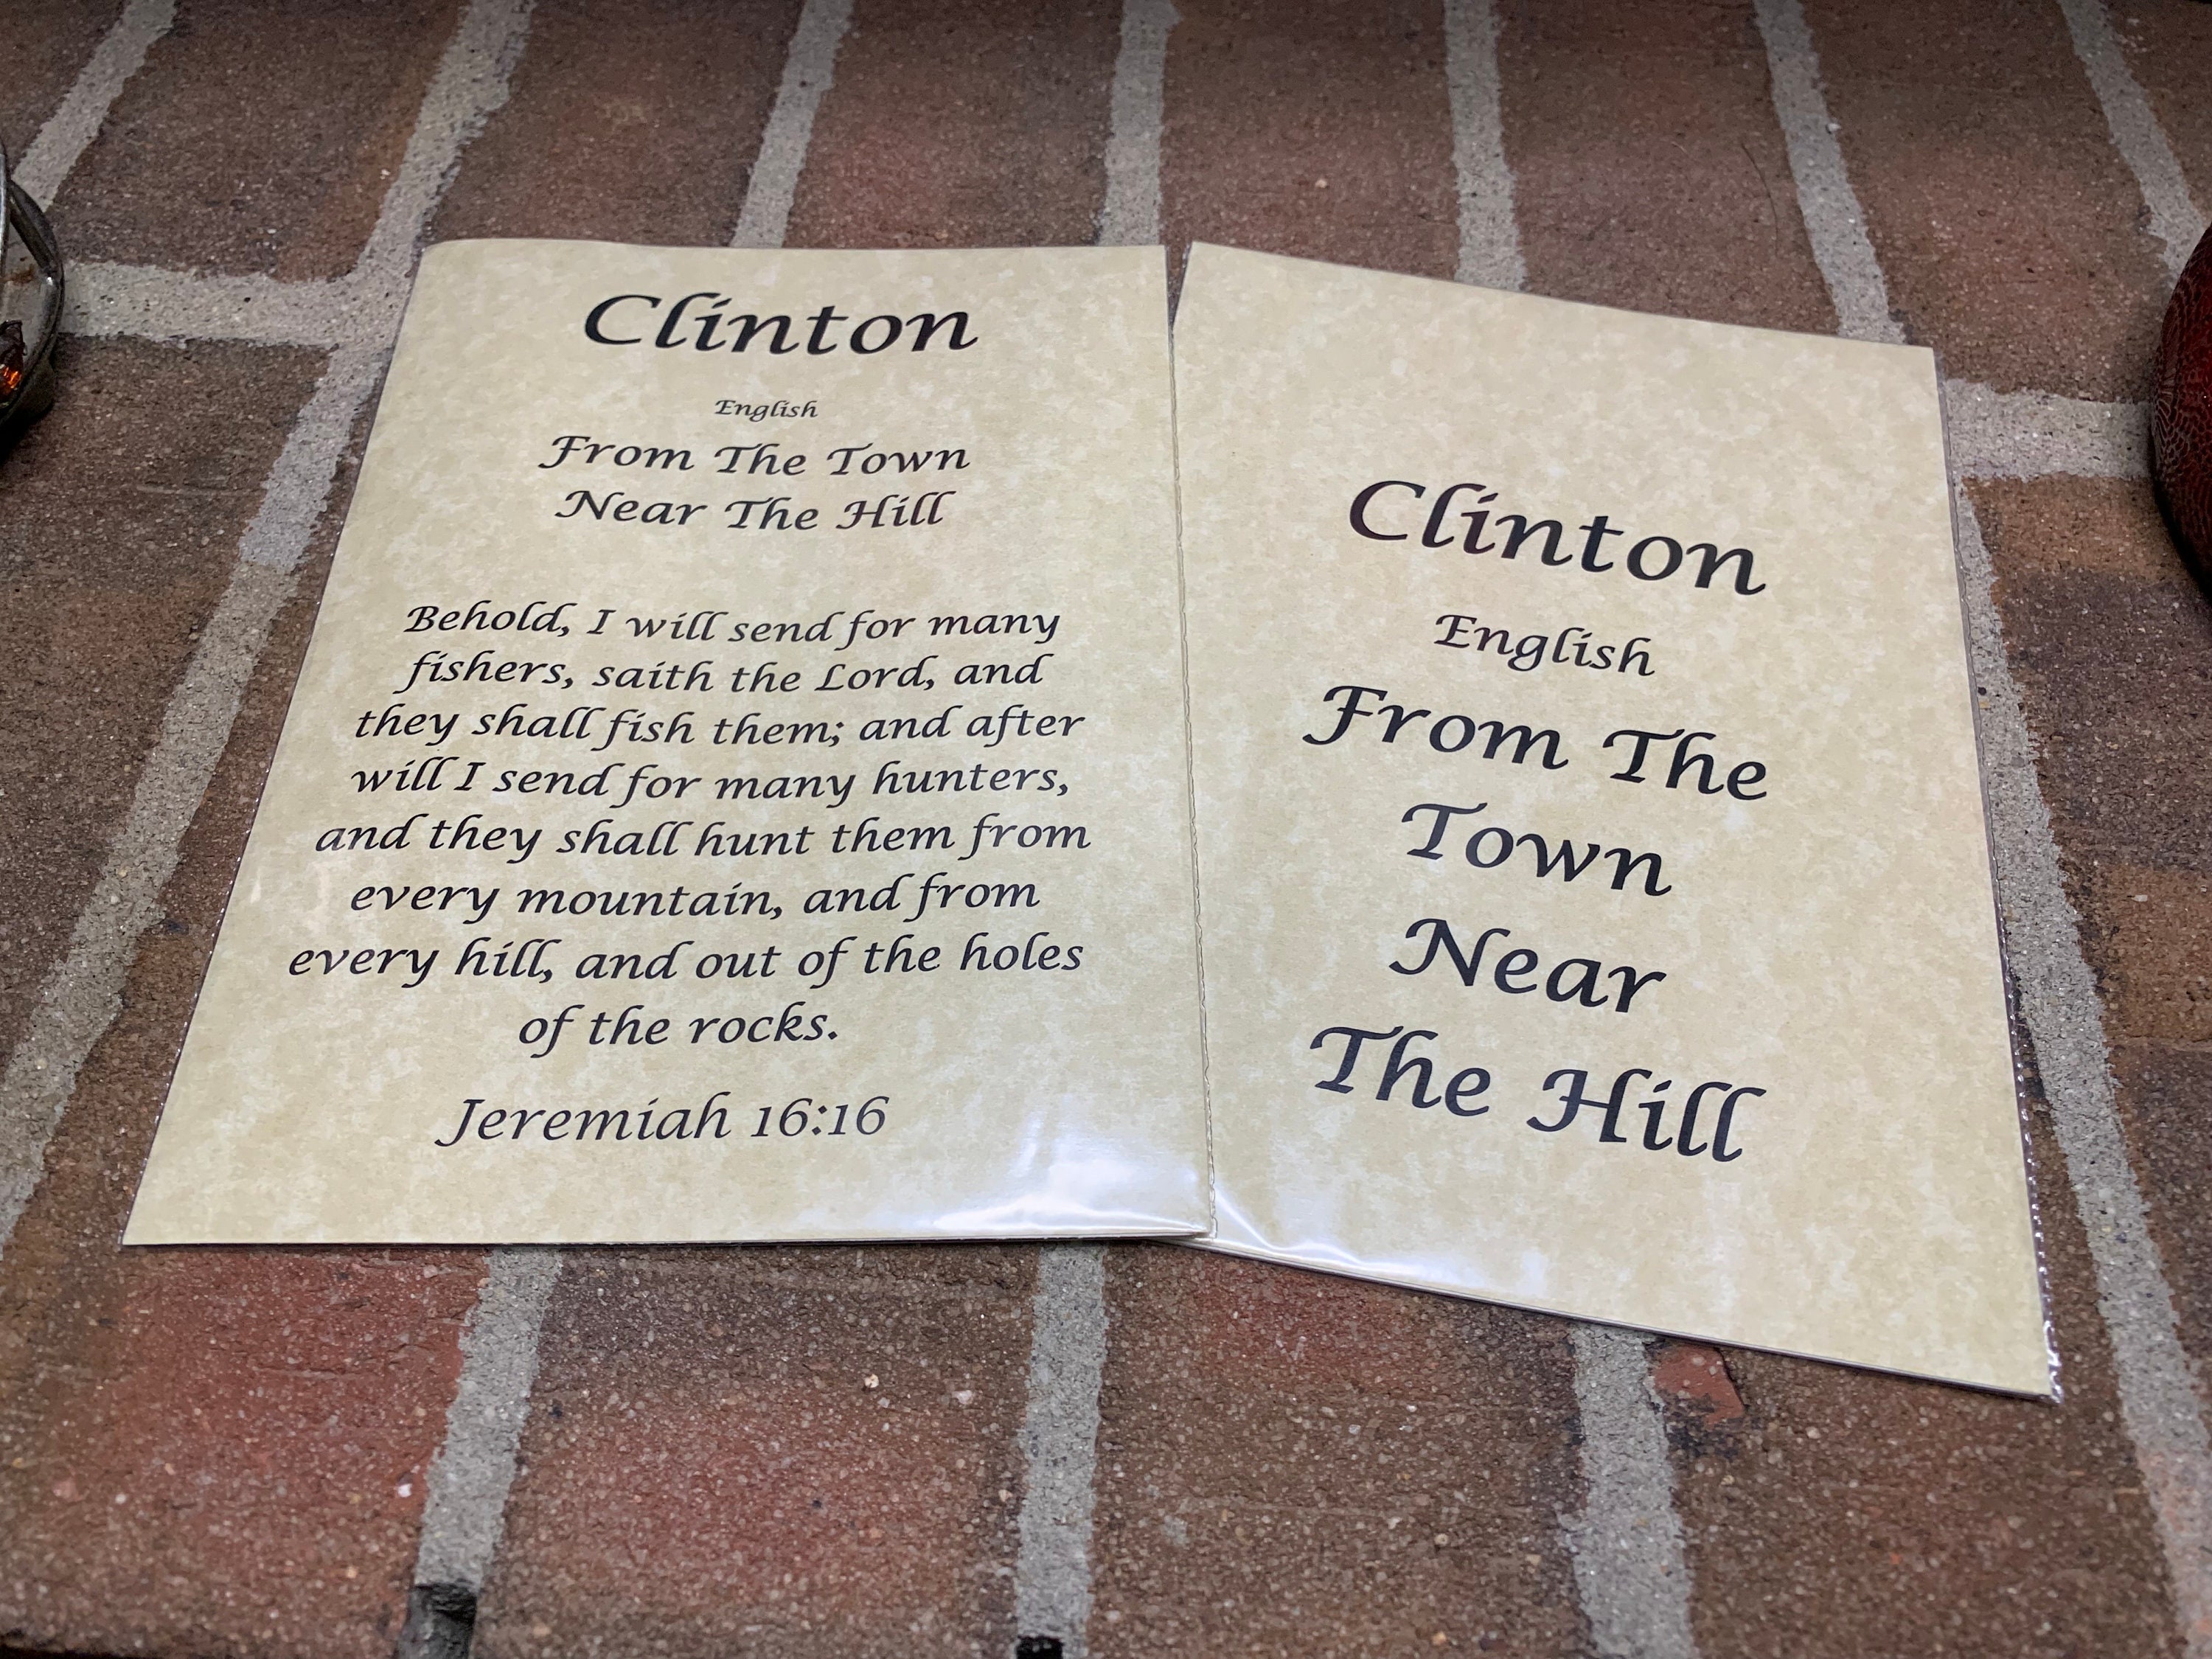 Clinton
English
From The Town
Near The Hill
Behold, I will send for many
fishers, saith the Lord, and
they shall fish them; and after
will I send for many hunters,
and they shall hunt them from
every mountain, and from
every hill, and out of the holes
of the rocks.
Jeremiah 16:16
Clinton
English
From The
Town
Near
The Hill